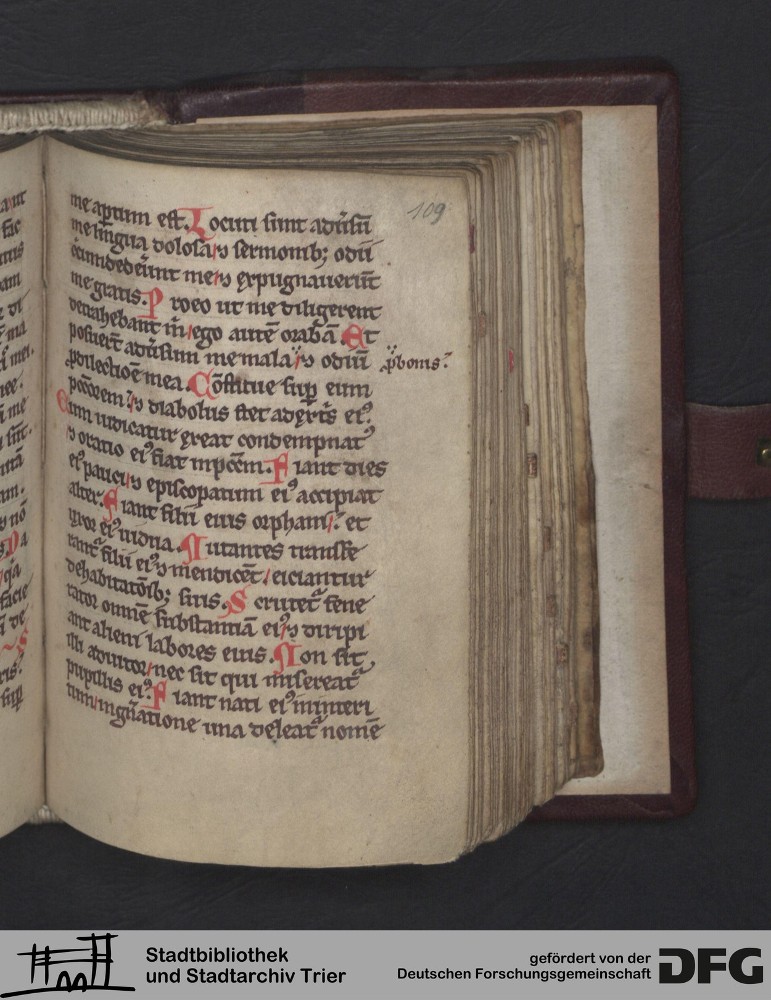 109
me aꝑtum est. Locuti sunt adu̕sū
me lingua dolosa / ⁊ sermonib; odii
circumdedeꝛunt me / ⁊ expugnauerūt
me gratis. Pro eo ut me diligerent
detrahebant m̄ / ego autē orabā. Et
posuer̄t adu̕sum me mala / ⁊ odiū
ꝓ bonis.
ꝓ dilectiōe mea. Cōstitue suꝑ eum
pccōrem / ⁊ diabolus stet a dextris eiꝰ.
Cum iudicatur exeat condempnatꝰ
⁊ oratio eiꝰ fiat in pccm̄. Fiant dies
eiꝰ pauci / ⁊ episcopatum eiꝰ accipiat
alter. Fiant filii eius orphani / et
uxor eiꝰ uidua. Nutantes transfe
rant᷑ filii eiꝰ ⁊ mendicēt / eiciantur
de habitatōib; suis. Scrutet᷑ fene
rator omnē substantiā eiꝰ / ⁊ diripi
ant alieni labores eius. Non sit
illi adiutor / nec sit qui misereat᷑
pupillis eiꝰ. Fiant nati eiꝰ in interi
tum / in gn̄atione una deleat᷑ nomē
Stadtbibliothek
und Stadtarchiv Trier
gefördert von der
Deutschen Forschungsgemeinschaft
DFG